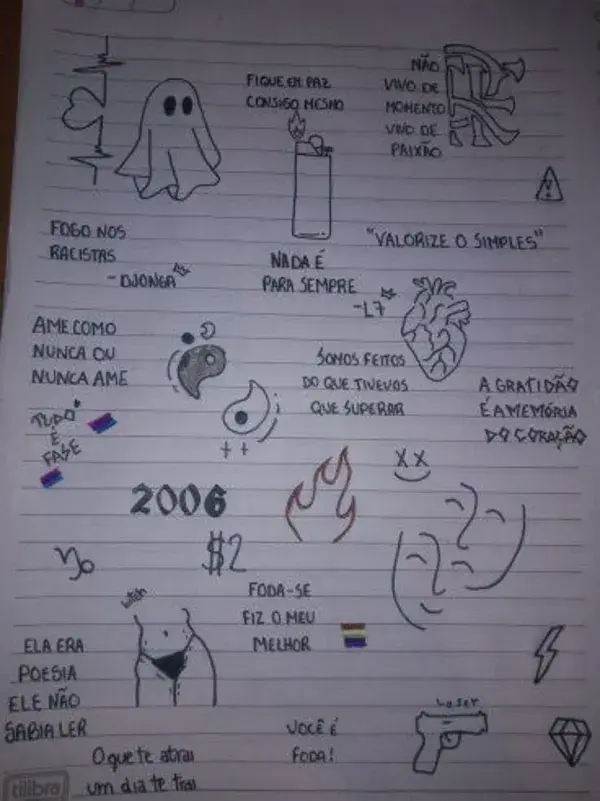 FIQUE EM PAZ
CONSIGO MESMO
NÃO
VIVO DE
MOMENTO
VIVO DE
PAIXÃO
FOGO NOS
RACISTAS
- DJONGA
NADA É
PARA SEMPRE
- L7
"VALORIZE O SIMPLES"
AME COMO
NUNCA OU
NUNCA AME
SOMOS FEITOS
DO QUE TIVEMOS
QUE SUPERAR
A GRATIDÃO
É A MEMÓRIA
DO CORAÇÃO
TUDO
É
FASE
2006
$2
FODA-SE
FIZ O MEU
MELHOR
ELA ERA
POESIA
ELE NÃO
SABIA LER
VOCÊ É
FODA!
LOSER
O que te atrai
um dia te trai
tilibra